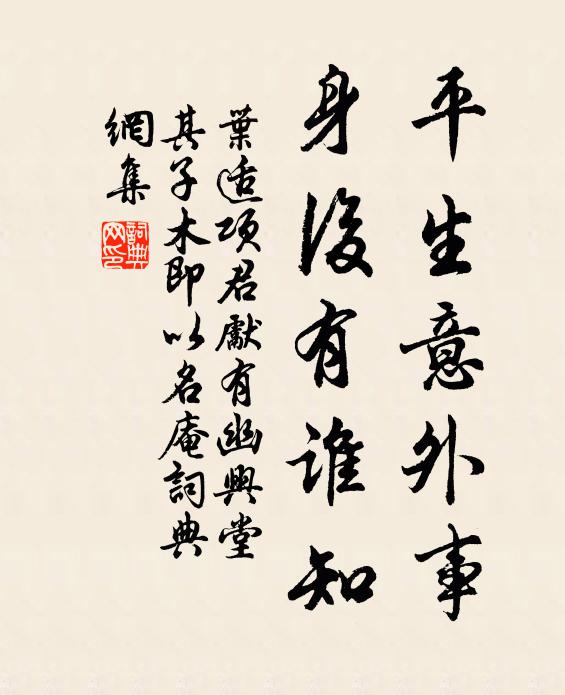 平生意外事
身後有誰知
葉适項君獻有幽興堂
其子木即以名庵詞典
網集
詞典網印